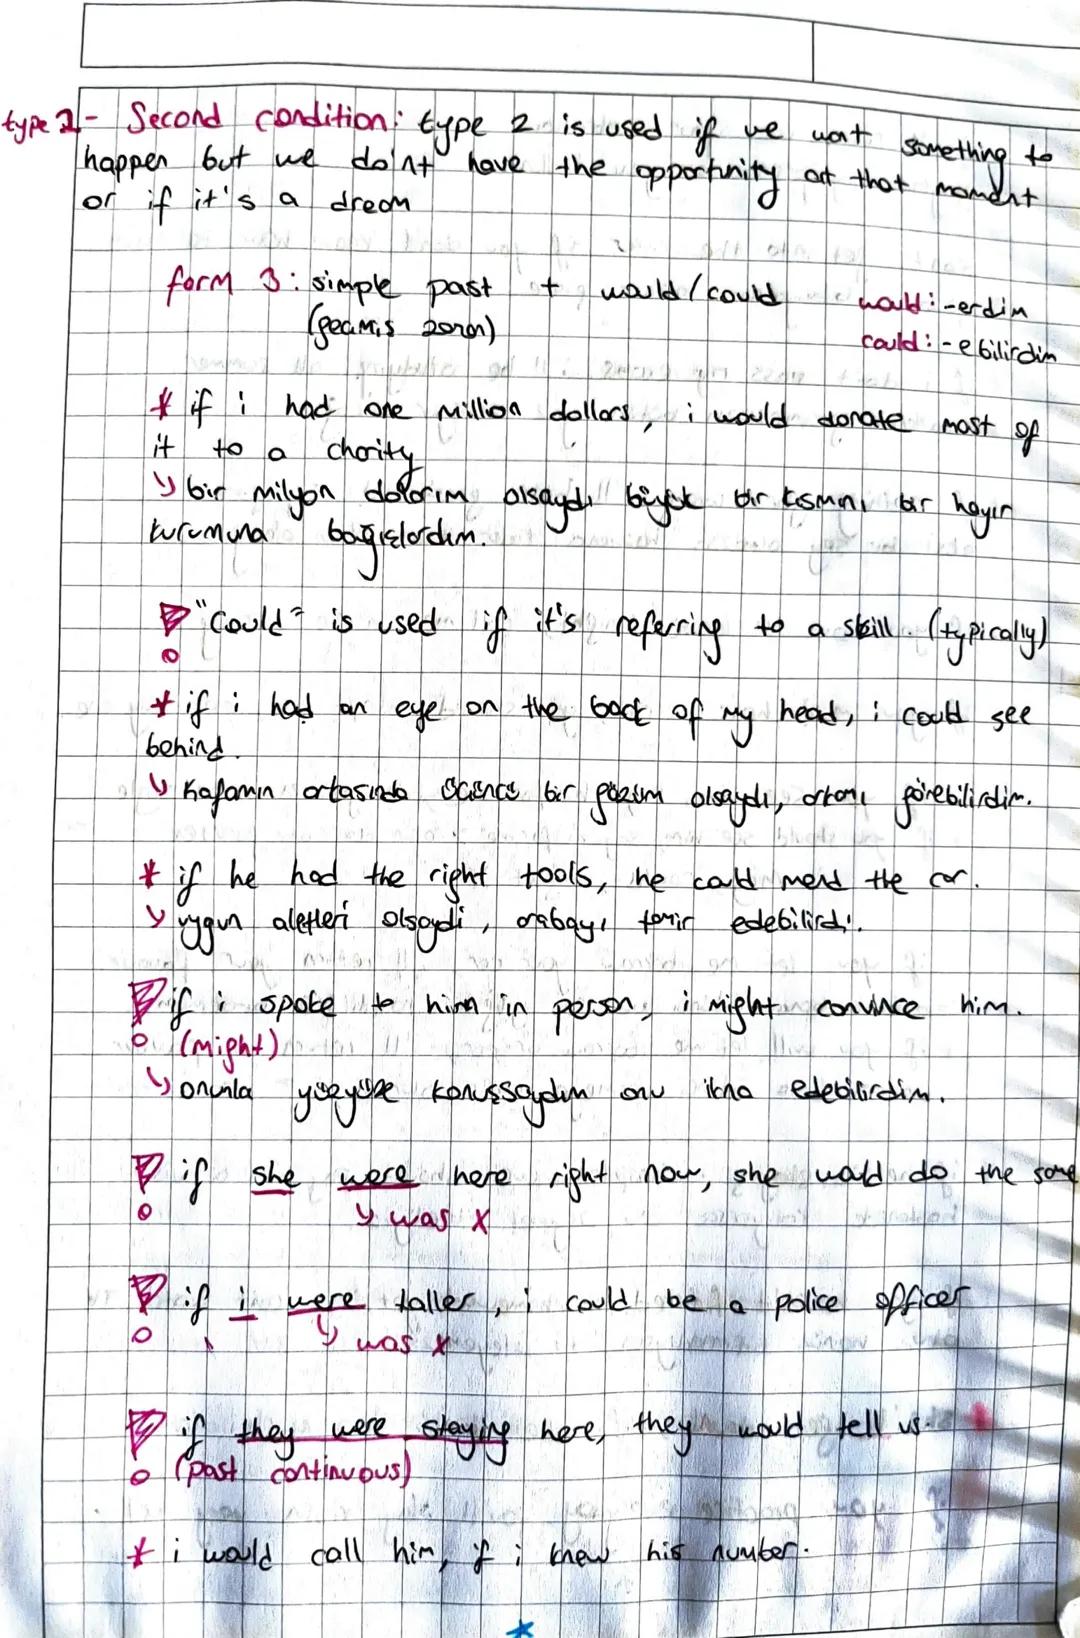 type 2- Second condition: type 2 is used if we want something to
happen but we do'nt have the opportunity at that moment
or if it's a dream
form 3: simple past + would/could would: -erdim
(geçmiş zaman) could: -ebilirdim
* if i had one million dollars, i would donate most of
it to a charity
↳ bir milyon dolarım olsaydı büyük bir kısmını bir hayır
kurumuna bağışlardım.
! "Could" is used if it's referring to a skill. (typically)
* if i had an eye on the back of my head, i could see
behind.
↳ Kafamın ortasında üçüncü bir gözüm olsaydı, arkamı görebilirdim.
* if he had the right tools, he could mend the car.
↳ uygun aletleri olsaydi, arabayı tamir edebilirdi.
! if i spoke to him in person, i might convince him.
(might)
↳ onunla yüzyüze konuşsaydım onu ikna edebilirdim.
! if she were here right now, she would do the same
↳ was x
! if i were taller, i could be a police officer
↳ was x
! if they were staying here, they would tell us.
(past continuous)
* i would call him, if i knew his number.